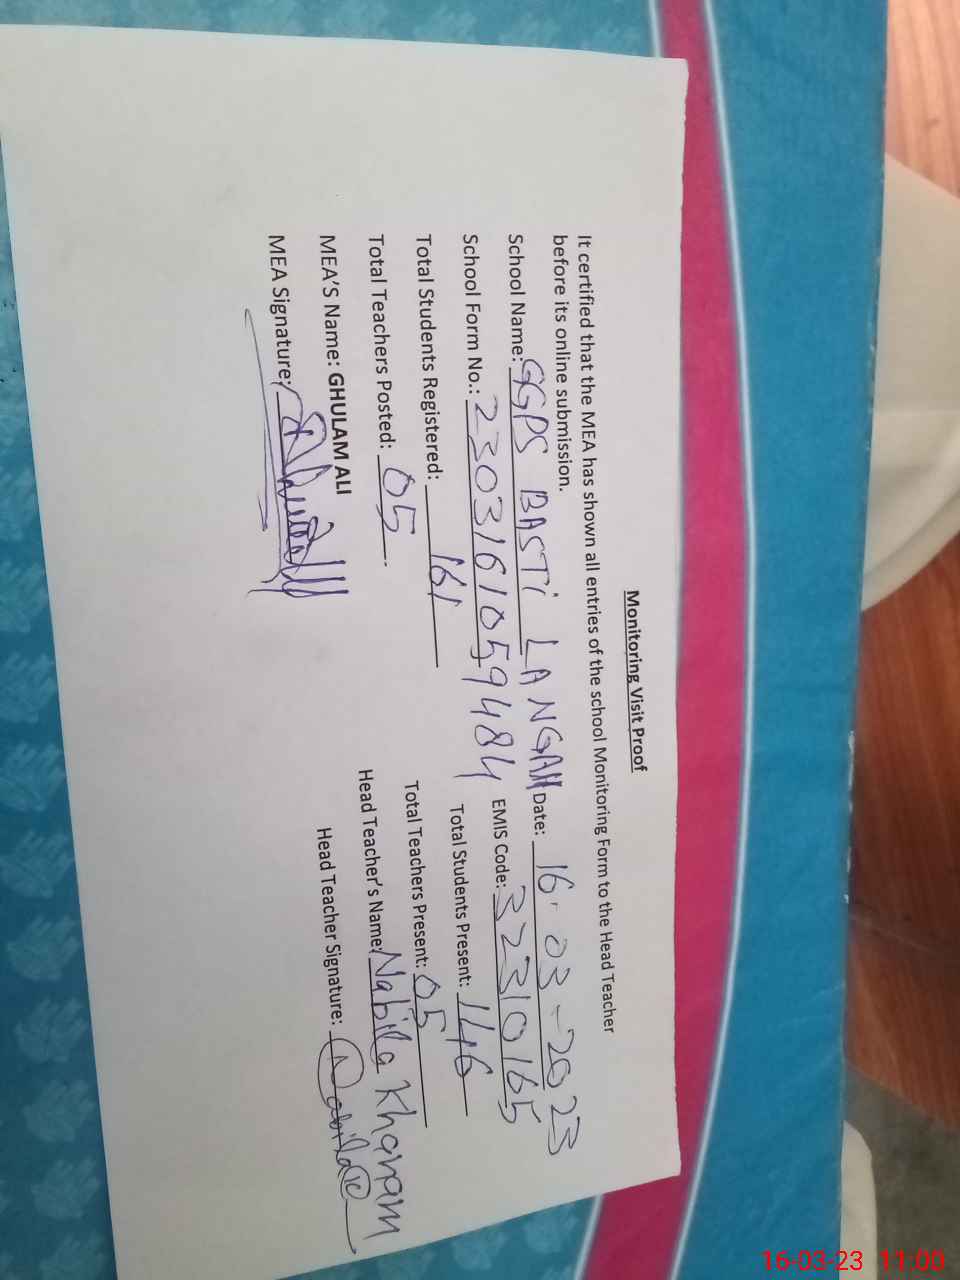 Monitoring Visit Proof
It certified that the MEA has shown all entries of the school Monitoring Form to the Head Teacher
before its online submission.
School Name: GGPS BASTi LANGAH Date: 16-03-2023
School Form No.: 2303161059484 EMIS Code: 32310165
Total Students Registered: 161 Total Students Present: 146
Total Teachers Posted: 05 Total Teachers Present: 05
MEA'S Name: GHULAM ALI Head Teacher's Name: Nabila Khanam
MEA Signature: Head Teacher Signature: Nabila K
16-03-23 11:00